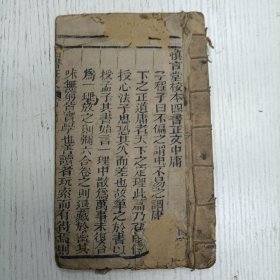 慎言堂校本四書正文中庸
子程子曰不偏之謂中不易之謂庸
下之正道庸者天下之定理此篇乃孔門傳
授心法子思恐其久而差也故筆之於書以
授孟子其書始言一理中散為萬事末復合
為一理放之則彌六合卷之則退藏於密其
味無窮皆實學也善讀者玩索而有得焉則